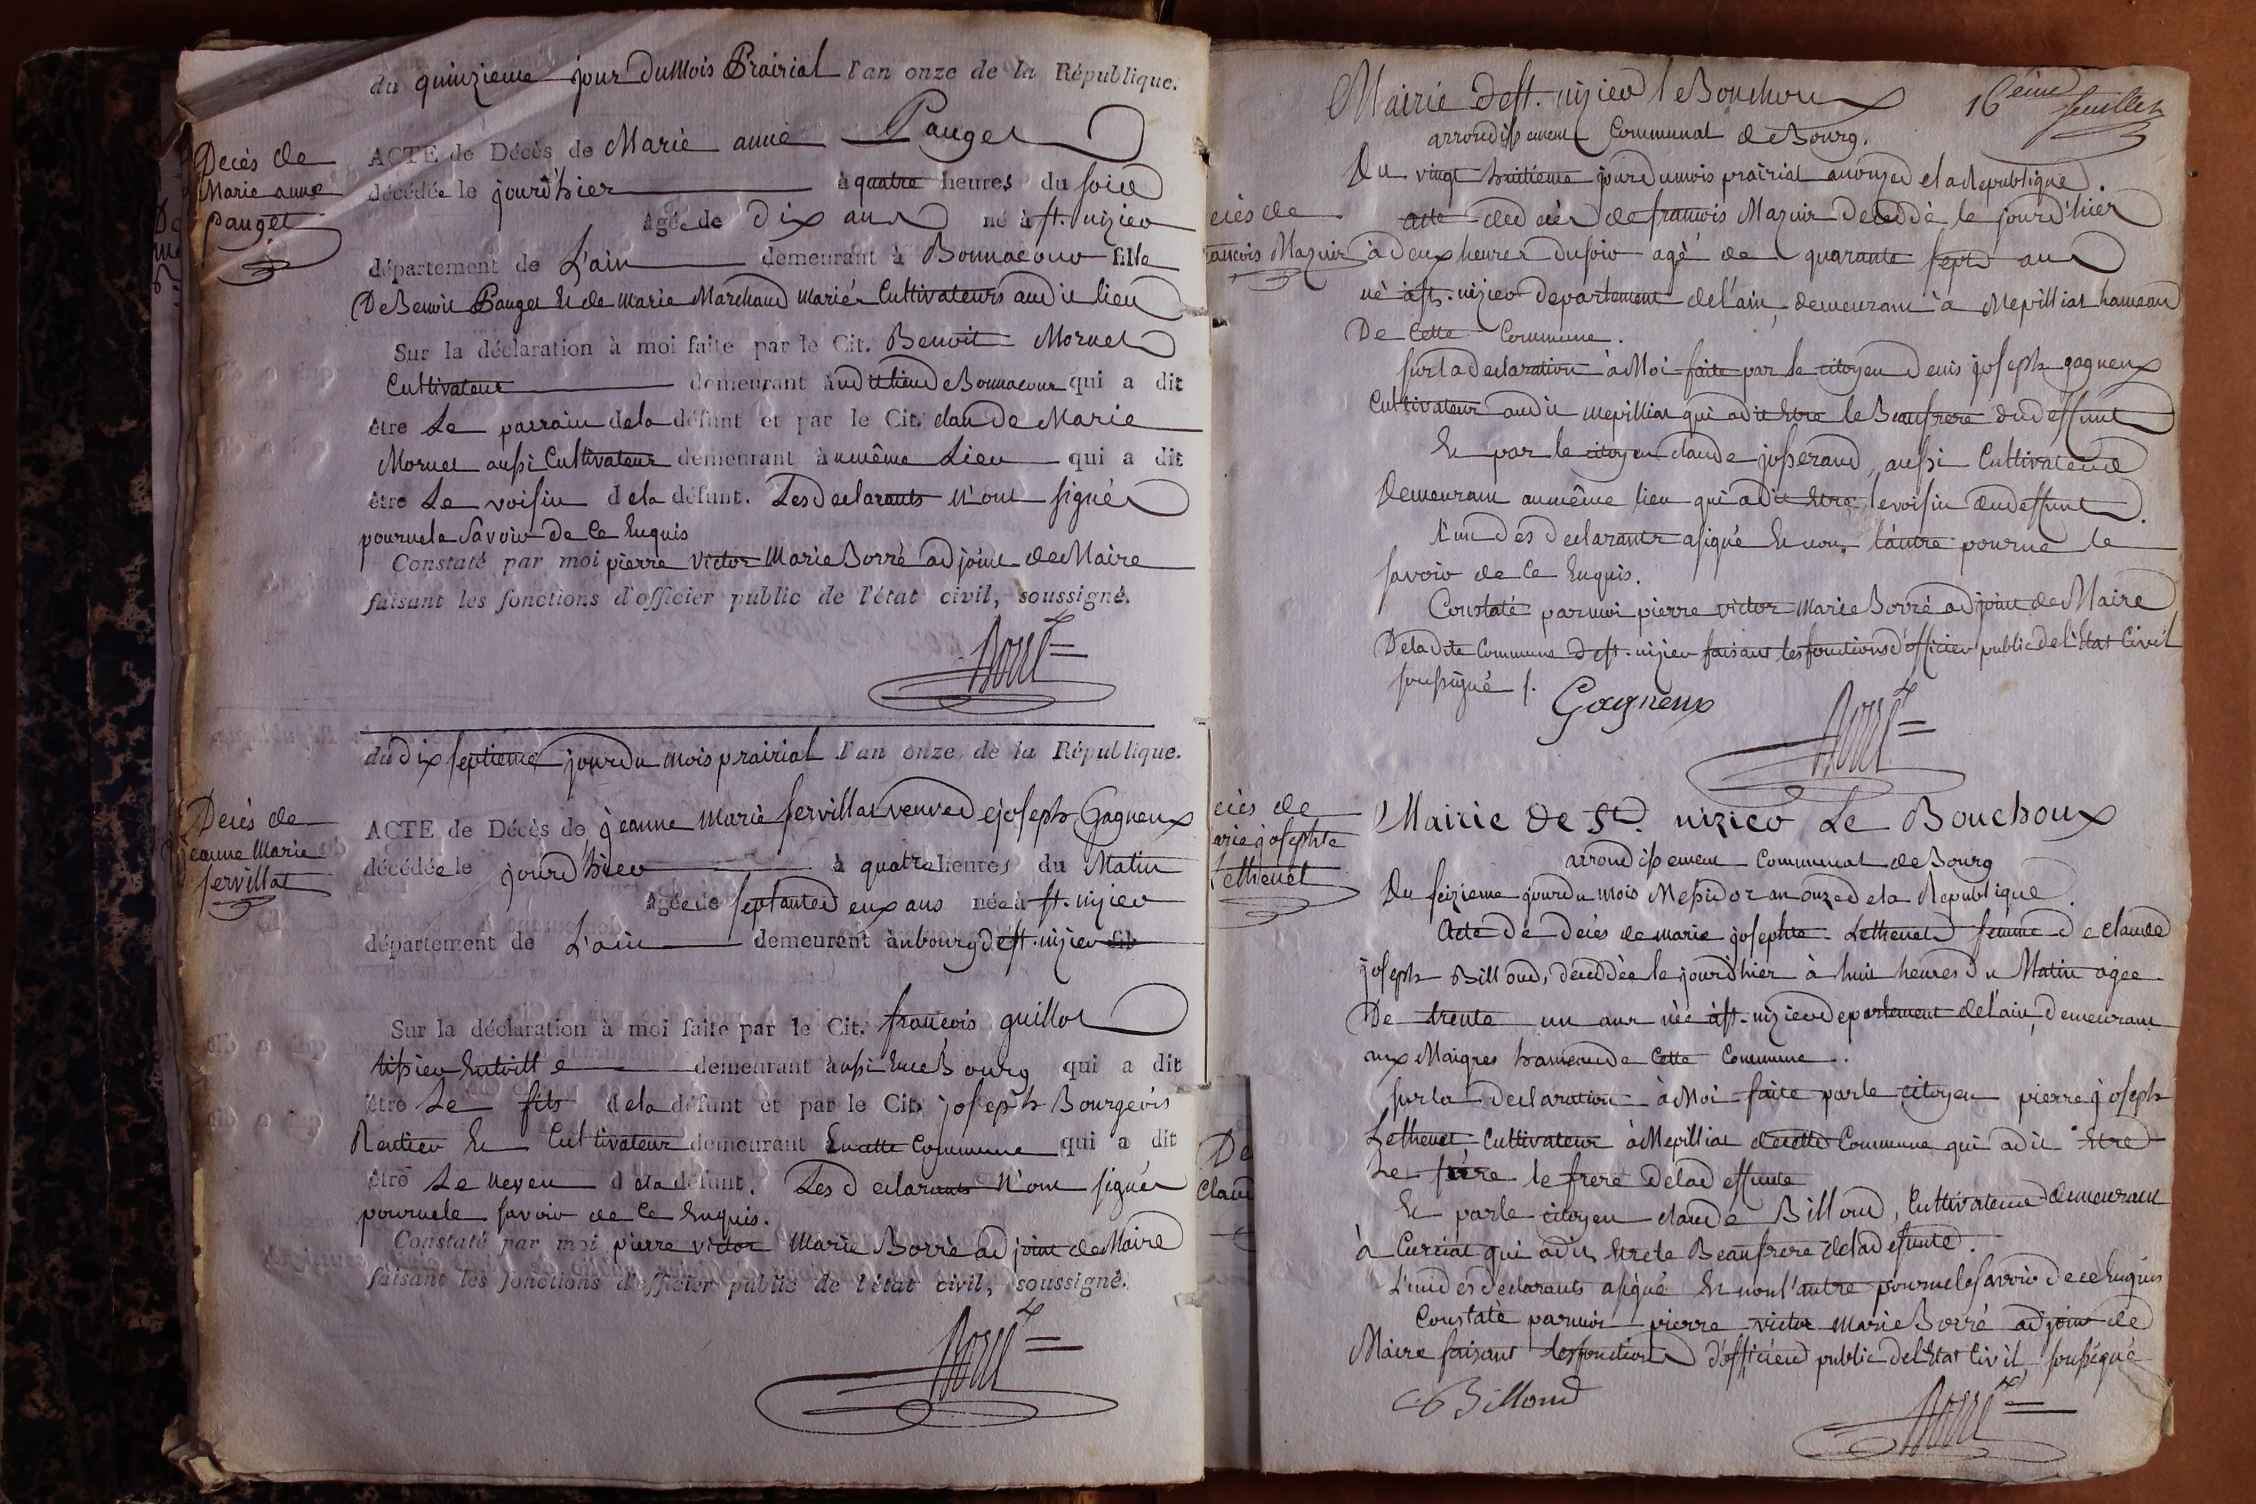 du quinzieme jour du mois Prairial l'an onze de la République.
Décès de
Marie anne
pauget
ACTE de Décès de Marie anne Pauget
décédée le jourd'hier à quatre heures du soir
âgée de dix ans né à st. nizier
département de L'ain demeurant à Bonnacour fille
De Benoit Pauget et de marie Marchand mariés Cultivateurs audit lieu
Sur la déclaration à moi faite par le Cit. Benoit Moruel
Cultivateur demeurant audit lieu de Bonnacour qui a dit
être Le parrain dela défunt et par le Cit. claude Marie
Moruel aussi Cultivateur demeurant à umême Lieu qui a dit
être Le voisin dela défunt. Les declarants n'ont signés
pour ne le savoir de ce Enquis
Constaté par moi pierre victor Marie Borré adjoint de Maire
faisant les fonctions d'officier public de l'état civil, soussigné.
Borré
du dix septieme jour du mois prairial l'an onze de la République.
Decès de
jeanne Marie
servillat
ACTE de Décès de jeanne Marie servillat veuve de joseph Gagneux
décédée le jourd'hier à quatre heures du Matin
âgée de septante deux ans née à st. nizier
département de L'ain demeurant au bourg de st. nizier fil
Sur la déclaration à moi faite par le Cit. francois guillot
tissier En ville demeurant aussi En ce Bourg qui a dit
être Le fils dela défunt et par le Cit. joseph Bourgeois
Rentier Et Cultivateur demeurant En cette Commune qui a dit
être Le neveu dela défunt. Les declarants n'ont signés
pour ne le savoir de ce Enquis.
Constaté par moi pierre victor Marie Borré adjoint de Maire
faisant les fonctions d'officier public de l'état civil, soussigné.
Borré
Mairie de st. nizier le Bouchoux
16eme feuillet
arrondissement Communal de Bourg.
Du vingt huitième jour du mois prairial an onze de la Republique.
ecès de
rancois Mazuir
acte de decès de francois Mazuir decedé le jourd'hier
à deux heures du soir agé de quarante sept ans
né à st. nizier departement de l'ain, demeurant à Mepilliat hameau
De Cette Commune.
sur la declaration à Moi faite par le citoyen denis joseph gagneux
Cultivateur audit mepilliat qui a dit Etre le Beaufrere du deffunt
Et par le citoyen claude josserand, aussi Cultivateur
Demeurant au même lieu qui a dit Etre le voisin du deffunt.
l'un des declarants a signé Et non l'autre pour ne le
savoir de ce Enquis.
Constaté par moi pierre victor Marie Borré adjoint de Maire
De ladite Commune de st. nizier faisant les fonctions d'officier public de l'Etat Civil
soussigné.
Gagneux
Borré
Mairie de St. nizier Le Bouchoux
arrondissement Communal de Bourg
ecès de
arie josephte
Lethenet
Du seizieme jour du mois Messidor an onze de la Republique.
Acte de decès de marie josephte Lethenet femme de claude
joseph Billoud, decedée le jourd'hier à huit heures du Matin agee
De trente un ans née à st. nizier departement de l'ain, demeurant
aux Maigres hameau de Cette Commune.
sur la declaration à Moi faite par le citoyen pierre joseph
Lethenet Cultivateur à Mepilliat de cette Commune qui a dit Etre
Le père le frere de la deffunte
Et par le citoyen claude Billoud, Cultivateur demeurant
à Curciat qui a dit Etre le Beaufrere de la defunte.
L'un des declarants a signé Et non l'autre pour ne le savoir de ce Enquis
Constaté par moi pierre victor Marie Borré adjoint de
Maire faisant les fonctions d'officier public de l'Etat Civil, soussigné
C. Billoud
Borré
De
Claud